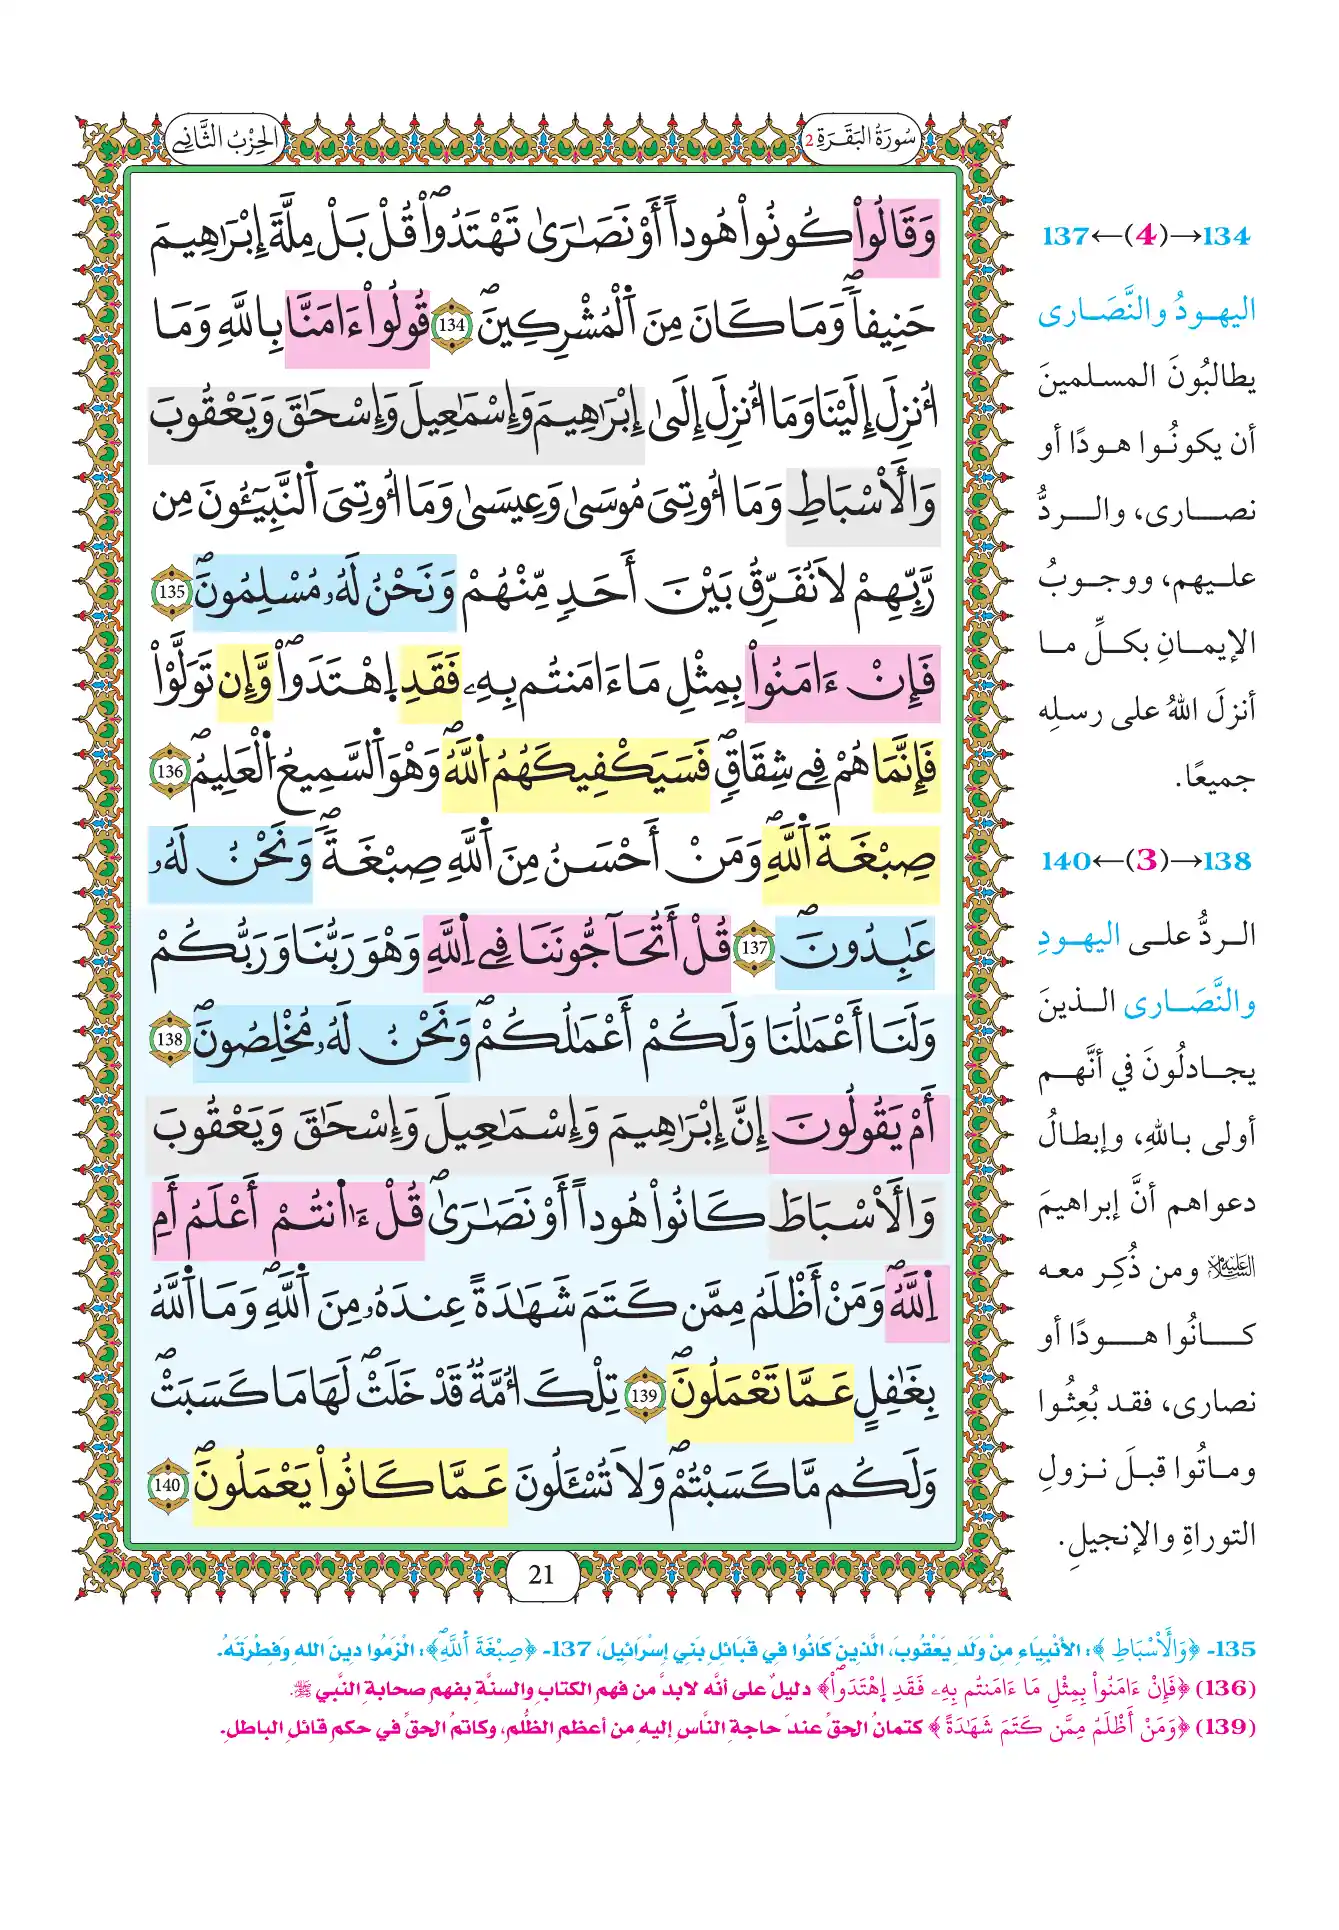 سُورَةُ البَقَرَةِ 2
الحِزْبُ الثَّانِي
وَقَالُواْ كُونُواْ هُوداً أَوْ نَصَٰرَىٰ تَهْتَدُواْۖ قُلْ بَلْ مِلَّةَ إِبْرَٰهِيمَ
حَنِيفاٗۖ وَمَا كَانَ مِنَ اَ۬لْمُشْرِكِينَۖ 134 قُولُوٓاْ ءَامَنَّا بِاللَّهِ وَمَا
أُنزِلَ إِلَيْنَا وَمَا أُنزِلَ إِلَىٰ إِبْرَٰهِيمَ وَإِسْمَٰعِيلَ وَإِسْحَٰقَ وَيَعْقُوبَ
وَالْأَسْبَاطِ وَمَا أُوتِيَ مُوسَىٰ وَعِيسَىٰ وَمَا أُوتِيَ اَ۬لنَّبِيٓـُٔونَ مِن
رَّبِّهِمْ لَا نُفَرِّقُ بَيْنَ أَحَدٍ مِّنْهُمْ وَنَحْنُ لَهُۥ مُسْلِمُونَۖ 135
فَإِنْ ءَامَنُواْ بِمِثْلِ مَا ءَامَنتُم بِهِۦ فَقَدِ اِ۪هْتَدَواْۖ وَّإِن تَوَلَّوْاْ
فَإِنَّمَا هُمْ فِي شِقَاقٍۖ فَسَيَكْفِيكَهُمُ اُ۬للَّهُۖ وَهْوَ اَ۬لسَّمِيعُ اُ۬لْعَلِيمُۖ 136
صِبْغَةَ اَ۬للَّهِۖ وَمَنْ أَحْسَنُ مِنَ اَ۬للَّهِ صِبْغَةٗۖ وَنَحْنُ لَهُۥ
عَٰبِدُونَۖ 137 قُلْ أَتُحَآجُّونَنَا فِي اِ۬للَّهِ وَهْوَ رَبُّنَا وَرَبُّكُمْ
وَلَنَا أَعْمَٰلُنَا وَلَكُمْ أَعْمَٰلُكُمْۖ وَنَحْنُ لَهُۥ مُخْلِصُونَۖ 138
أَمْ يَقُولُونَ إِنَّ إِبْرَٰهِيمَ وَإِسْمَٰعِيلَ وَإِسْحَٰقَ وَيَعْقُوبَ
وَالْأَسْبَاطَ كَانُواْ هُوداً أَوْ نَصَٰرَىٰۖ قُلْ ءَا۬نتُمْ أَعْلَمُ أَمِ
اِ۬للَّهُۖ وَمَنْ أَظْلَمُ مِمَّن كَتَمَ شَهَٰدَةً عِندَهُۥ مِنَ اَ۬للَّهِۖ وَمَا اَ۬للَّهُ
بِغَٰفِلٍ عَمَّا تَعْمَلُونَۖ 139 تِلْكَ أُمَّةٞ قَدْ خَلَتْۖ لَهَا مَا كَسَبَتْۖ
وَلَكُم مَّا كَسَبْتُمْۖ وَلَا تُسْـَٔلُونَ عَمَّا كَانُواْ يَعْمَلُونَۖ 140
21
134→(4)←137
اليهودُ والنَّصَارى
يطالبُونَ المسلمينَ
أن يكونُوا هودًا أو
نصارى، والردُّ
عليهم، ووجوبُ
الإيمانِ بكلِّ ما
أنزلَ اللهُ على رسلِه
جميعًا.
138→(3)←140
الردُّ على اليهودِ
والنَّصَارى الذينَ
يجادلُونَ في أنَّهم
أولى باللهِ، وإبطالُ
دعواهم أنَّ إبراهيمَ
عليه السلام ومن ذُكِر معه
كانُوا هودًا أو
نصارى، فقد بُعِثُوا
وماتُوا قبلَ نزولِ
التوراةِ والإنجيلِ.
135- ﴿وَالْأَسْبَاطِ﴾: الأنْبِيَاءِ مِنْ وَلَدِ يَعْقُوبَ، الَّذِينَ كَانُوا فِي قَبَائِلِ بَنِي إِسْرَائِيلَ، 137- ﴿صِبْغَةَ اَ۬للَّهِۖ﴾: الْزَمُوا دِينَ اللهِ وَفِطْرَتَهُ.
(136) ﴿فَإِنْ ءَامَنُواْ بِمِثْلِ مَا ءَامَنتُم بِهِۦ فَقَدِ اِ۪هْتَدَواْۖ﴾ دليلٌ على أنَّه لابدَّ من فهمِ الكتابِ والسنَّةِ بفهمِ صحابةِ النَّبي ﷺ.
(139) ﴿وَمَنْ أَظْلَمُ مِمَّن كَتَمَ شَهَٰدَةً﴾ كتمانُ الحقِّ عندَ حاجةِ النَّاسِ إليهِ من أعظمِ الظُّلمِ، وكاتمُ الحقِّ في حكمِ قائلِ الباطلِ.